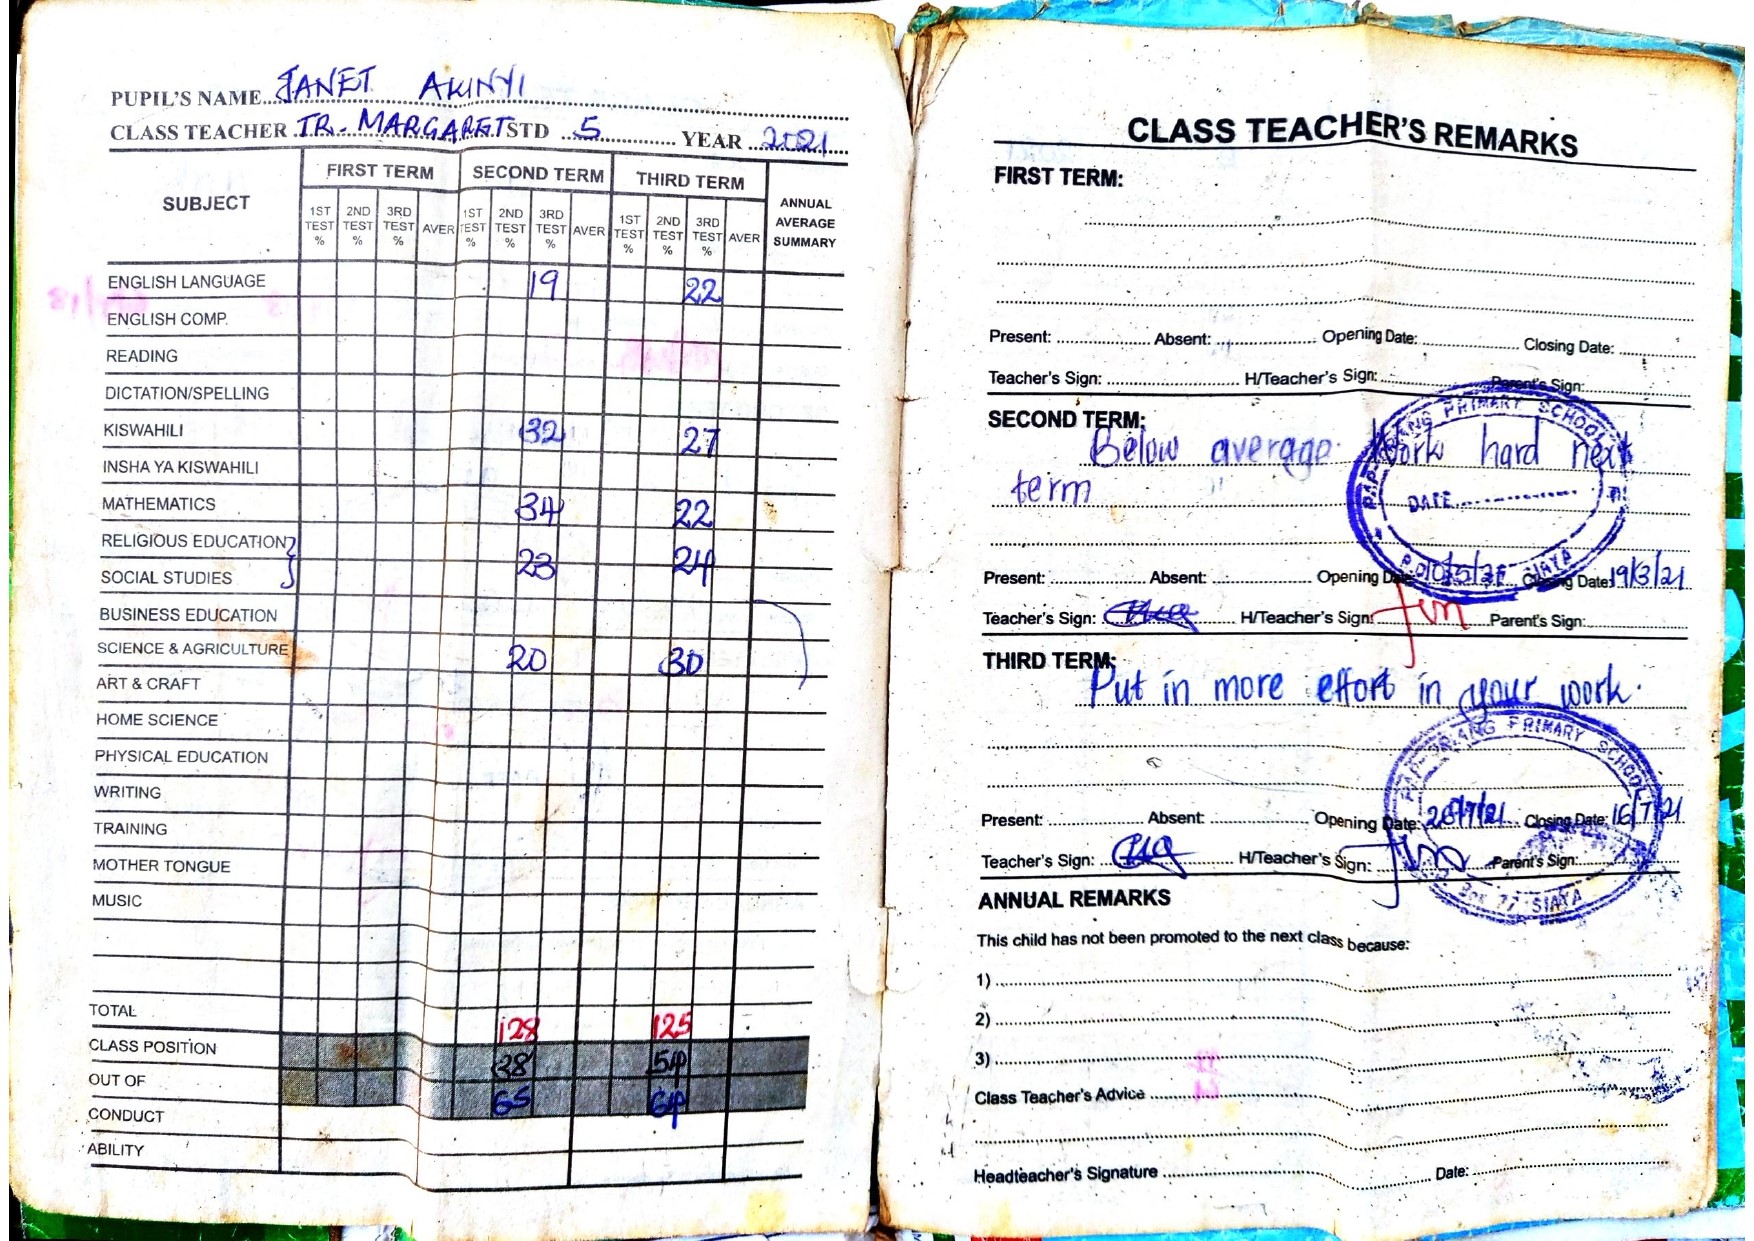 PUPIL'S NAME JANET AKINYI
CLASS TEACHER TR. MARGARET STD 5 YEAR 2021
SUBJECT FIRST TERM SECOND TERM THIRD TERM ANNUAL AVERAGE SUMMARY
1ST TEST % 2ND TEST % 3RD TEST % AVER 1ST TEST % 2ND TEST % 3RD TEST % AVER 1ST TEST % 2ND TEST % 3RD TEST % AVER
ENGLISH LANGUAGE 19 22
ENGLISH COMP.
READING
DICTATION/SPELLING
KISWAHILI 32 27
INSHA YA KISWAHILI
MATHEMATICS 34 22
RELIGIOUS EDUCATION
SOCIAL STUDIES 23 24
BUSINESS EDUCATION
SCIENCE & AGRICULTURE 20 30
ART & CRAFT
HOME SCIENCE
PHYSICAL EDUCATION
WRITING
TRAINING
MOTHER TONGUE
MUSIC
TOTAL 128 125
CLASS POSITION 38 54
OUT OF 65 64
CONDUCT
ABILITY
CLASS TEACHER'S REMARKS
FIRST TERM:
Present: Absent: Opening Date: Closing Date:
Teacher's Sign: H/Teacher's Sign: Parent's Sign:
SECOND TERM:
Below average. Work hard next
term
PRIMARY SCHOOL
DATE
SIAYA
Present: Absent: Opening Date: Closing Date: 19/3/21
Teacher's Sign: H/Teacher's Sign: Parent's Sign:
THIRD TERM:
Put in more effort in your work.
PRIMARY SCHOOL
Present: Absent: Opening Date: Closing Date: 16/7/21
Teacher's Sign: H/Teacher's Sign: Parent's Sign:
Box 77 SIAYA
ANNUAL REMARKS
This child has not been promoted to the next class because:
1)
2)
3)
Class Teacher's Advice
Headteacher's Signature Date: